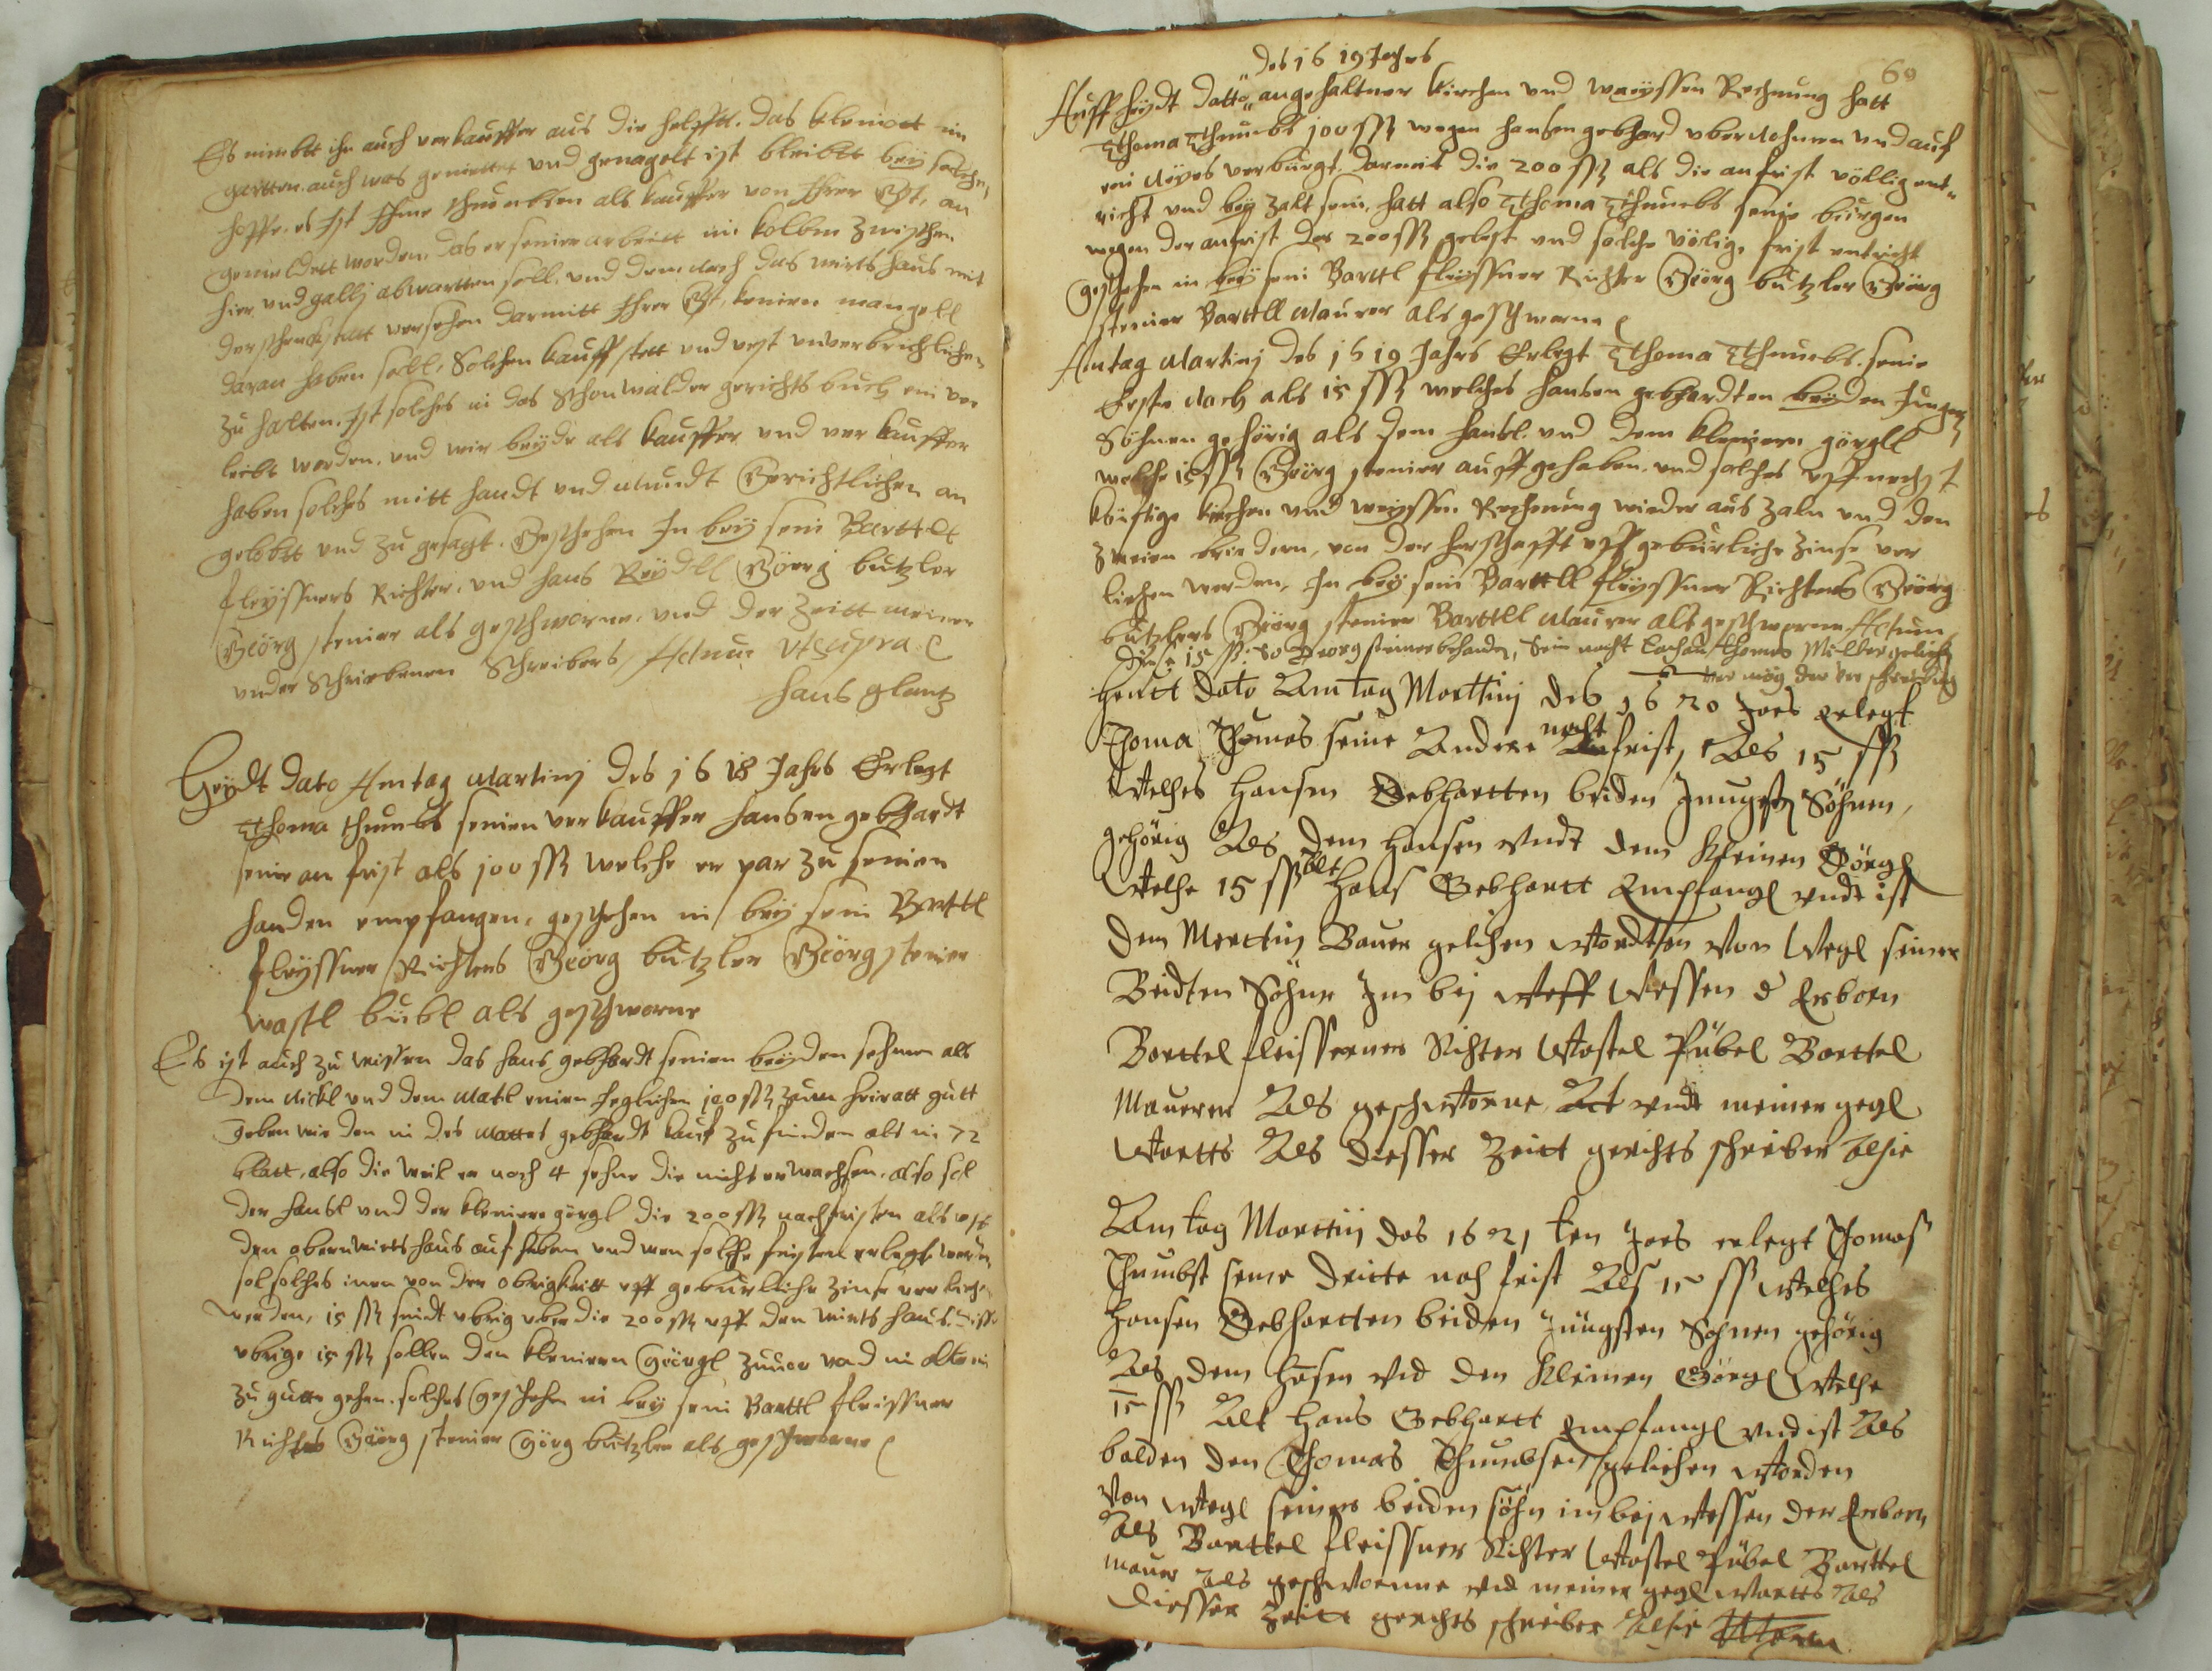 Es nimbtt ihr auch verkauffer aus die helfftt. das kleinott im
gartten. auch was geniettet und genagelt ist bleibtt beÿ solchn
hoffe. es Ist Ihme thumbsen als kauffer von Ihrer Gst, an
gemeldett worden. das er seiner arbeitt im kolben zwischen
hier und gallj abwartten soll. und dennach das wirtshaus mit
der schenckstatt versehen darmitt Ihrer Gst, keinen mangell
daran haben soll. Solchen kauff stett und vest unverbrichlichen
zu halten. Ist solches in das Schonwalder gerichts buch ein ver
leibt worden. und wir beÿde als kauffer und ver kauffer
haben solches mitt handt und Mundt Gerichtlichen an
gelobtt und zu gesagt. Geschehen In beÿ sein Barttlt
fleÿssners Richter. und hans Reÿdll Gëorg butzler
Gëorg steiner als geschworne. und der Zeitt meiner
under Schriebenen Schreibers, Actum Ut supra
hans glantz
Heÿdt dato Am tag Martinj des 1618 Jahrs Erlegt
Thoma thumbs seinen verkauffer hansen gebhardt
seine an frist als 100 ßß welche er par zu seinen
handen empfangen. geschehen in beÿ sein Barttl
fleÿssner Richters Gëorg butzler Gëorg steiner
wastl bubl als geschworne
Es ist auch zu wissen das hans gebhardt seinen beÿden sehnen als
dem Nickl und dem Matl einen Jeglichen 100 ßß zum heiratt gutt
geben wie den in des Mattes gebhardt kauf zu finden als in 72
blatt, also die weil er noch 4 sehne die nicht erwachsen. also sol
der hansl und der kleinere görgl die 200 ßß nachfristen als uff
den obern wirts haus auf haben und wen solche fristen erlegt werdn
sol solches inen von der obrigkeitt uff geburliche Zinse verliehen
werden, 15 ßß seindt ubrig uber die 200 ßß uff den wirts haus. diese
ubrige 15 ßß sollen den kleinern Gëorgl zuvor und in
zu gutte gehen. solches Geschehen in beÿ sein Barttl fleissner
Richters Gëorg steiner Görg butzler als geschworne
des 1619 Jahrs
60
Auff heÿdt datto angehaltner kirchen und waÿssen Rechnung hatt
Thoma Thumbs 100 ßß wegen hansen gebhard ubernohmen und auf
ein Neÿes verburgt. darmit die 200 ßß als die anfrist völlig ent-
richt und beÿ zalt sein. hatt also Thoma Thumbs seine burgen
wegen der anfrist der 200 ßß gelest und solche völlige frist entricht
Geschehen in beÿ sein Barttl fleÿssner Richter Gëorg butzler Gëorg
steiner Barttll Maurer als geschworne
Am tag Martinj des 1619 Jahrs Erlegt Thoma Thumbs seine
Erste Nach als 15 ßß welches hansen gebhardten beÿden Jungen
Söhnen gehörig als dem hansl. und dem kleinern görgll
welche 15 ßß Gëorg steiner auffgehaben. und solches uff nechst
künftige kirchen und waÿssen Rechnung wieder aus zaln und den
zweien briedern, von der herschafft uff geburliche Zinse ver
liehen werden, In beÿ sein Barttll fleÿssner Richters Gëorg
butzlers Gëorg steiner Barttll Maurer als geschworne Actum
Diese 15 ßß so Georg steiner behanden, Sein nacht Thomas Milller geliehen
ver mög der ver schreibung
Heutt dato Am tag Marttinj des 1620 Jars erlegt
Thoma Thumas seine Andere nacht frist, Als 15 ßß
Welches Hansen Gebhartten beiden Jungsten Söhnen,
gehörig Als dem Hansen undt dem Kleinen Görgl
Welche 15 ßß Alt Hans Gebhartt Empfangl undt ist
dem Merttin Bauer gelihen wordten von wegl seiner
Beidten Söhne Im beÿ wessen d Erborn
Barttel fleissenern Richter Wastel Pübel Barttel
Maurer Als geschworne undt meiner gegl
wartts Als diesser Zeitt gerichts schreiber alhie
Am tag Marttinj des 1621 ten Jars erlegt Thomas
Thumbst seine dritte noch frist Als 15 ßß welches
Hansen Gebhartten beiden Jüngsten Söhnen gehörig
Als dem Hansen und den Kleinen Görgl Welche
15 ßß Alt Hans Gebhartt Empfangl und ist Als
balden den Thomas Thumbsen gelichen worden
von wegl seiner beiden söhn im beÿ wessen der Erborn
Als Barttel fleissner Richter Wastel Pübel Barttel
Maurer Als geschworne und meiner gegl wartts Als
diesser Zeitt gerichts schreiber alhie